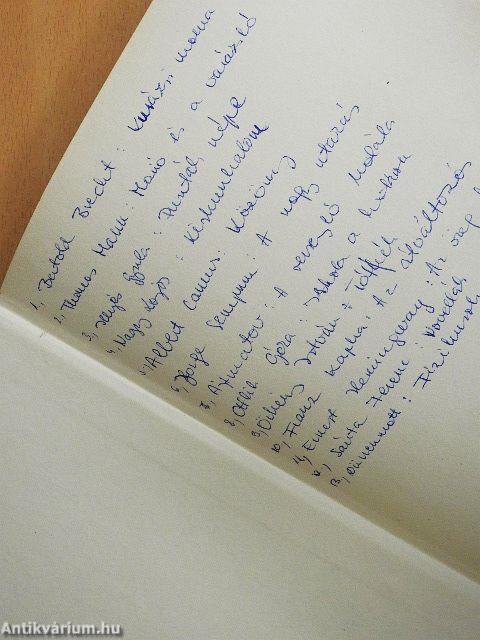 1, Bertold Brecht: Kurázsi mama
2, Thomas Mann: Mário és a varázsló
3, Illyés Gyula: Puszták népe
4, Nagy Lajos: Kiskunhalom
5, Albert Camus: Közöny
6, Jorge Semprun: A nagy utazás
7, Ajtmatov: A versengő
8, Ottlik Géza: Iskola a határon
9, Örkény István: Tóték
10, Franz Kafka: Az átváltozás
11, Ernest Hemingway: Az öreg h
12, Sánta Ferenc: novellák
13, Dürrenmatt: Fizikusok
Antikvárium.hu